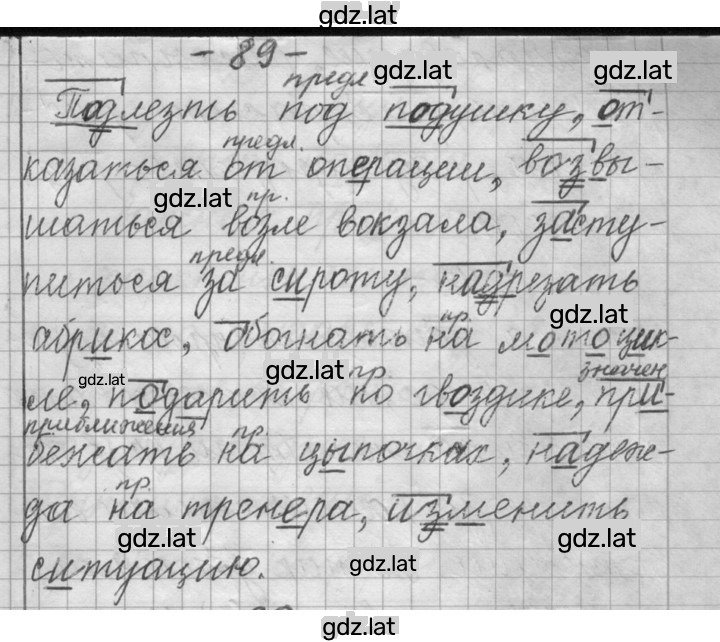 gdz.lat
- 89 -
предл gdz.lat gdz.lat
Подлезть под подушку, от-
предл.
казаться от операции, возвы-
gdz.lat пр.
шаться возле вокзала, засту-
предл.
питься за сироту, надрезать
пр. gdz.lat
абрикос, обогнать на мотоцик-
gdz.lat gdz.lat пр. значен
ле, подарить по гвоздике, при-
приближения пр.
бежать на цыпочках, надеж-
пр.
да на тренера, изменить
gdz.lat gdz.lat
ситуацию. gdz.lat
gdz.lat